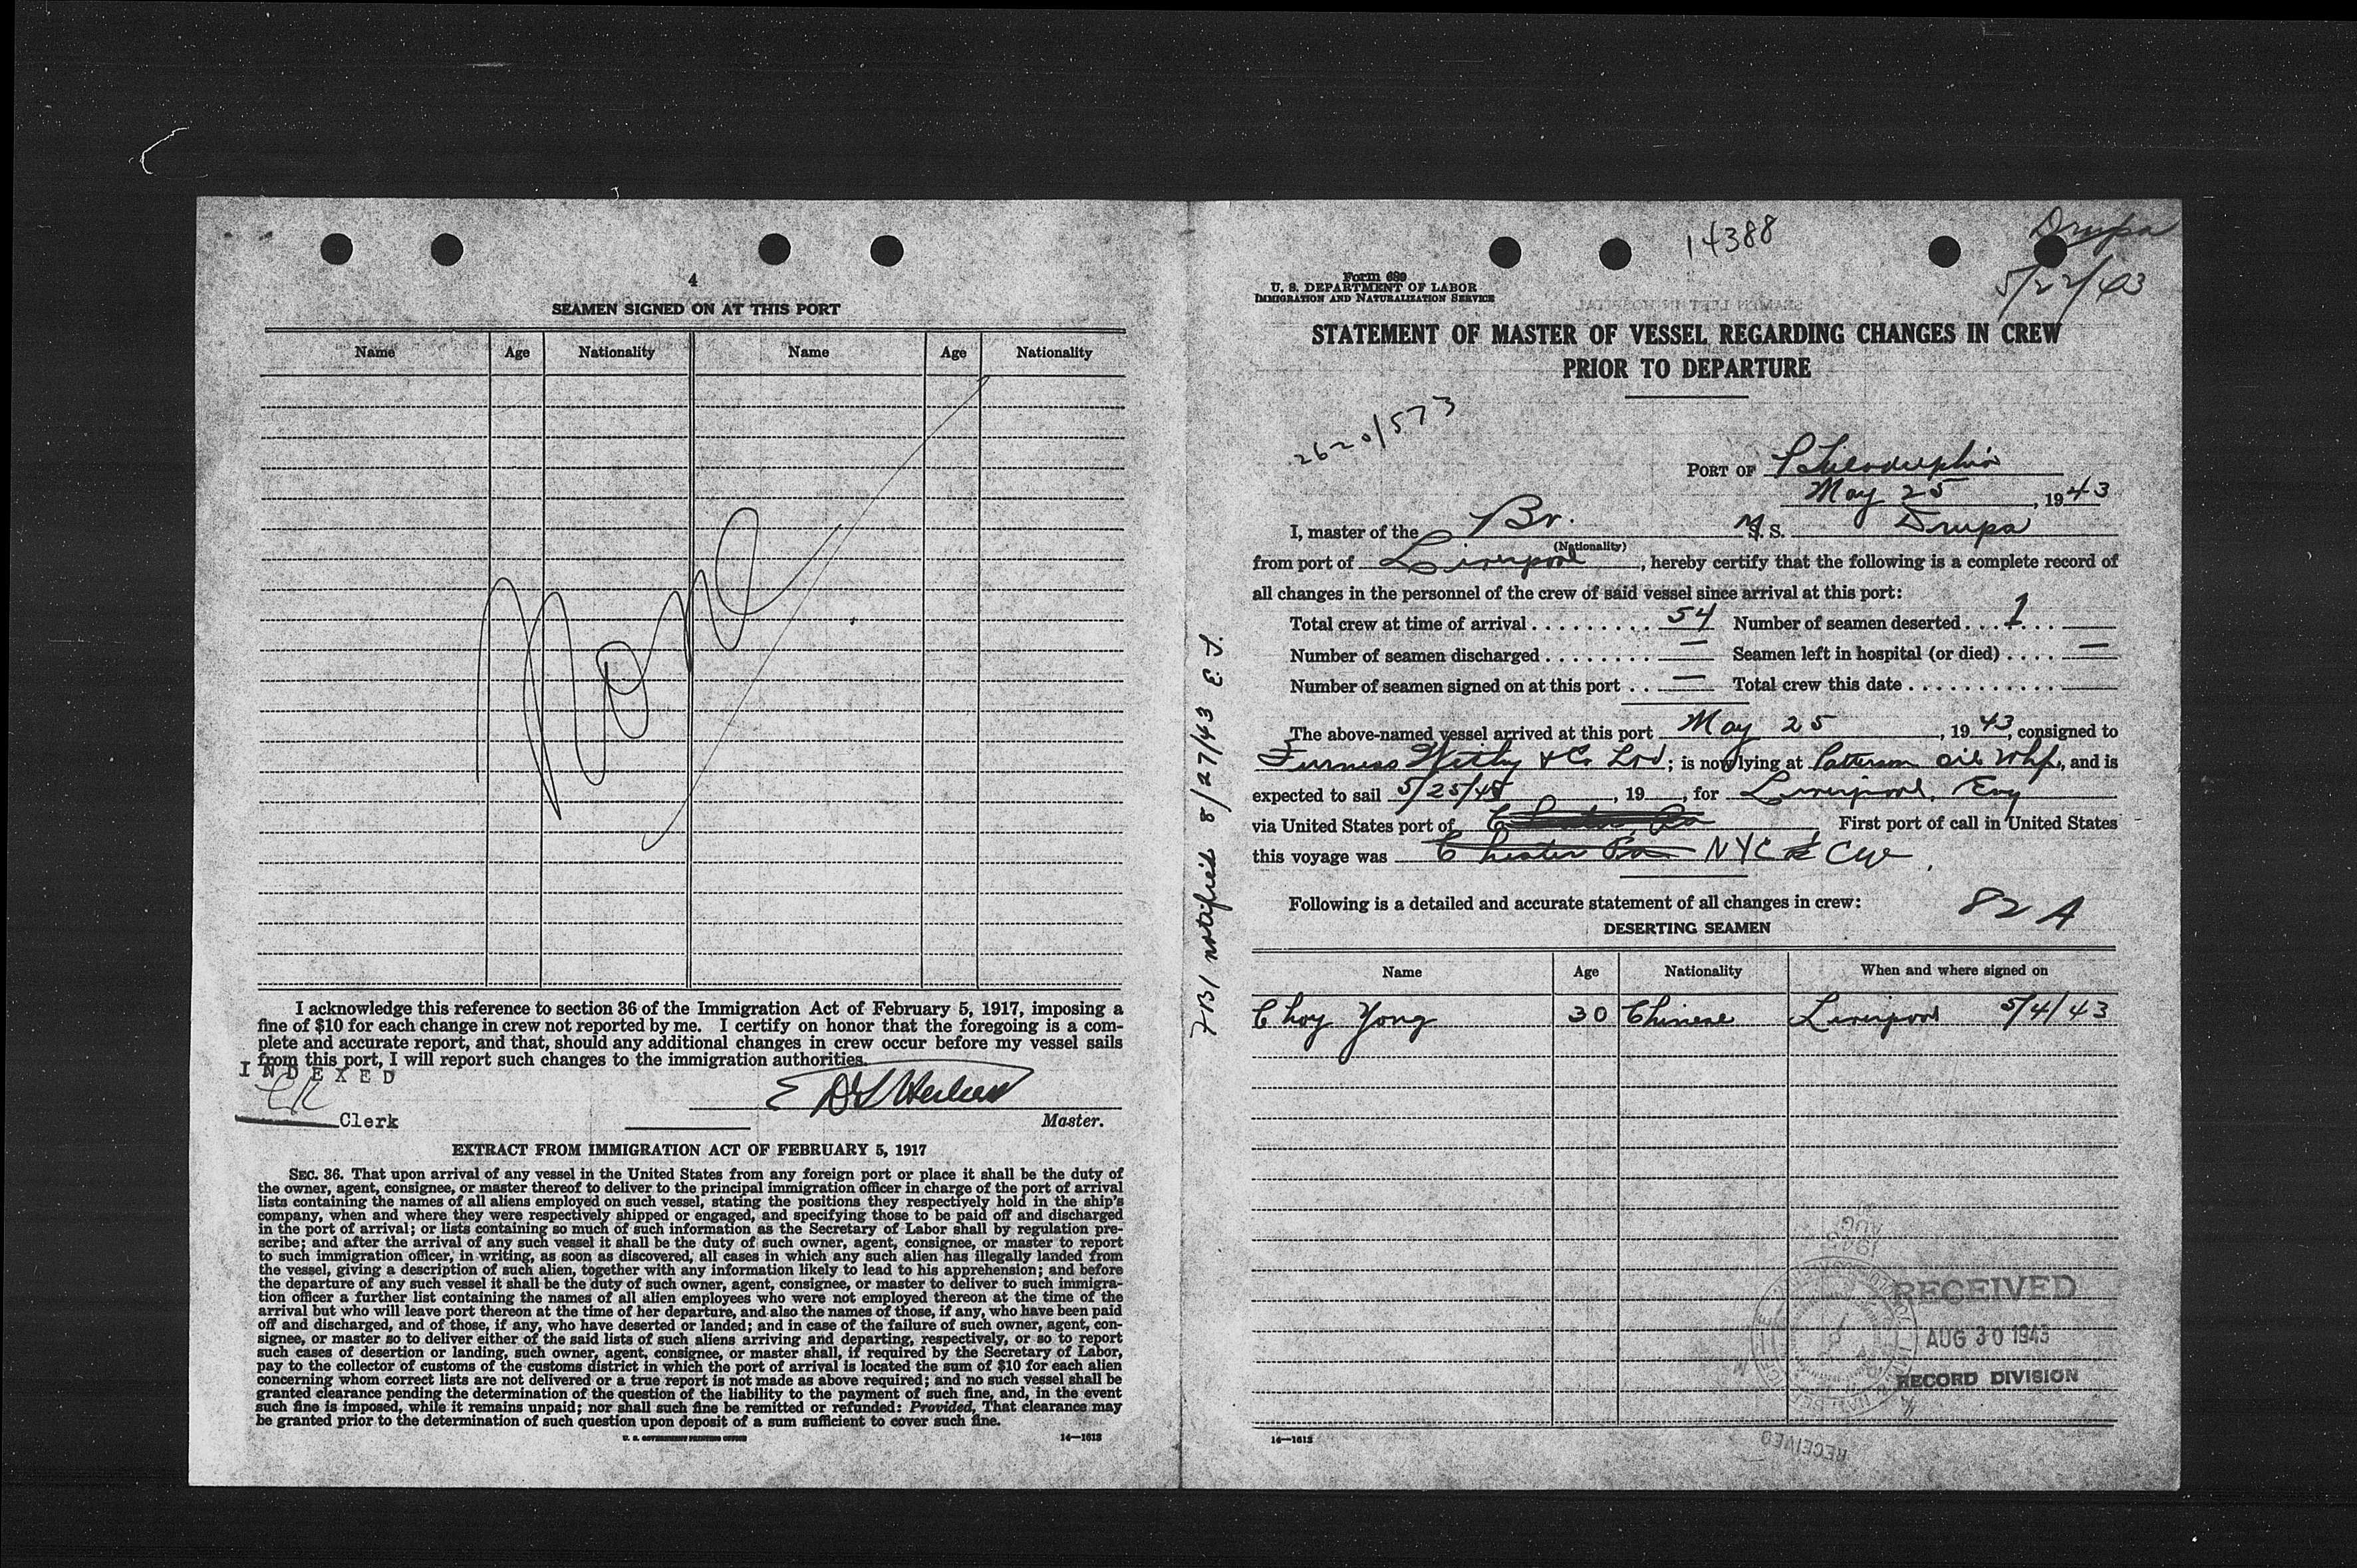 4
SEAMEN SIGNED ON AT THIS PORT
Name Age Nationality Name Age Nationality
None
I acknowledge this reference to section 36 of the Immigration Act of February 5, 1917, imposing a
fine of $10 for each change in crew not reported by me. I certify on honor that the foregoing is a com-
plete and accurate report, and that, should any additional changes in crew occur before my vessel sails
from this port, I will report such changes to the immigration authorities.
INDEXED
Clerk
Master.
EXTRACT FROM IMMIGRATION ACT OF FEBRUARY 5, 1917
SEC. 36. That upon arrival of any vessel in the United States from any foreign port or place it shall be the duty of
the owner, agent, consignee, or master thereof to deliver to the principal immigration officer in charge of the port of arrival
lists containing the names of all aliens employed on such vessel, stating the positions they respectively hold in the ship's
company, when and where they were respectively shipped or engaged, and specifying those to be paid off and discharged
in the port of arrival; or lists containing so much of such information as the Secretary of Labor shall by regulation pre-
scribe; and after the arrival of any such vessel it shall be the duty of such owner, agent, consignee, or master to report
to such immigration officer, in writing, as soon as discovered, all cases in which any such alien has illegally landed from
the vessel, giving a description of such alien, together with any information likely to lead to his apprehension; and before
the departure of any such vessel it shall be the duty of such owner, agent, consignee, or master to deliver to such immigra-
tion officer a further list containing the names of all alien employees who were not employed thereon at the time of the
arrival but who will leave port thereon at the time of her departure, and also the names of those, if any, who have been paid
off and discharged, and of those, if any, who have deserted or landed; and in case of the failure of such owner, agent, con-
signee, or master so to deliver either of the said lists of such aliens arriving and departing, respectively, or so to report
such cases of desertion or landing, such owner, agent, consignee, or master shall, if required by the Secretary of Labor,
pay to the collector of customs of the customs district in which the port of arrival is located the sum of $10 for each alien
concerning whom correct lists are not delivered or a true report is not made as above required; and no such vessel shall be
granted clearance pending the determination of the question of the liability to the payment of such fine, and, in the event
such fine is imposed, while it remains unpaid; nor shall such fine be remitted or refunded: Provided, That clearance may
be granted prior to the determination of such question upon deposit of a sum sufficient to cover such fine.
U. S. GOVERNMENT PRINTING OFFICE 14—1613
FBI notified 8/27/43 E.S.
14388
Drupa
5/22/43
Form 689
U. S. DEPARTMENT OF LABOR
IMMIGRATION AND NATURALIZATION SERVICE
STATEMENT OF MASTER OF VESSEL REGARDING CHANGES IN CREW
PRIOR TO DEPARTURE
2620/573
PORT OF Philadelphia
May 25, 1943
I, master of the Br. M. S. Drupa
(Nationality)
from port of Liverpool, hereby certify that the following is a complete record of
all changes in the personnel of the crew of said vessel since arrival at this port:
Total crew at time of arrival 54 Number of seamen deserted 1
Number of seamen discharged — Seamen left in hospital (or died) —
Number of seamen signed on at this port — Total crew this date
The above-named vessel arrived at this port May 25, 1943, consigned to
Furness Withy & Co Ltd; is now lying at Patterson Oil Whf, and is
expected to sail 5/25/43, 19 , for Liverpool, Eng
via United States port of Chester, Pa First port of call in United States
this voyage was Chester Pa NYC
Following is a detailed and accurate statement of all changes in crew:
82 A
DESERTING SEAMEN
Name Age Nationality When and where signed on
Choy Yong 30 Chinese Liverpool 5/4/43
RECEIVED
AUG 30 1943
RECORD DIVISION
14—1613
RECEIVED